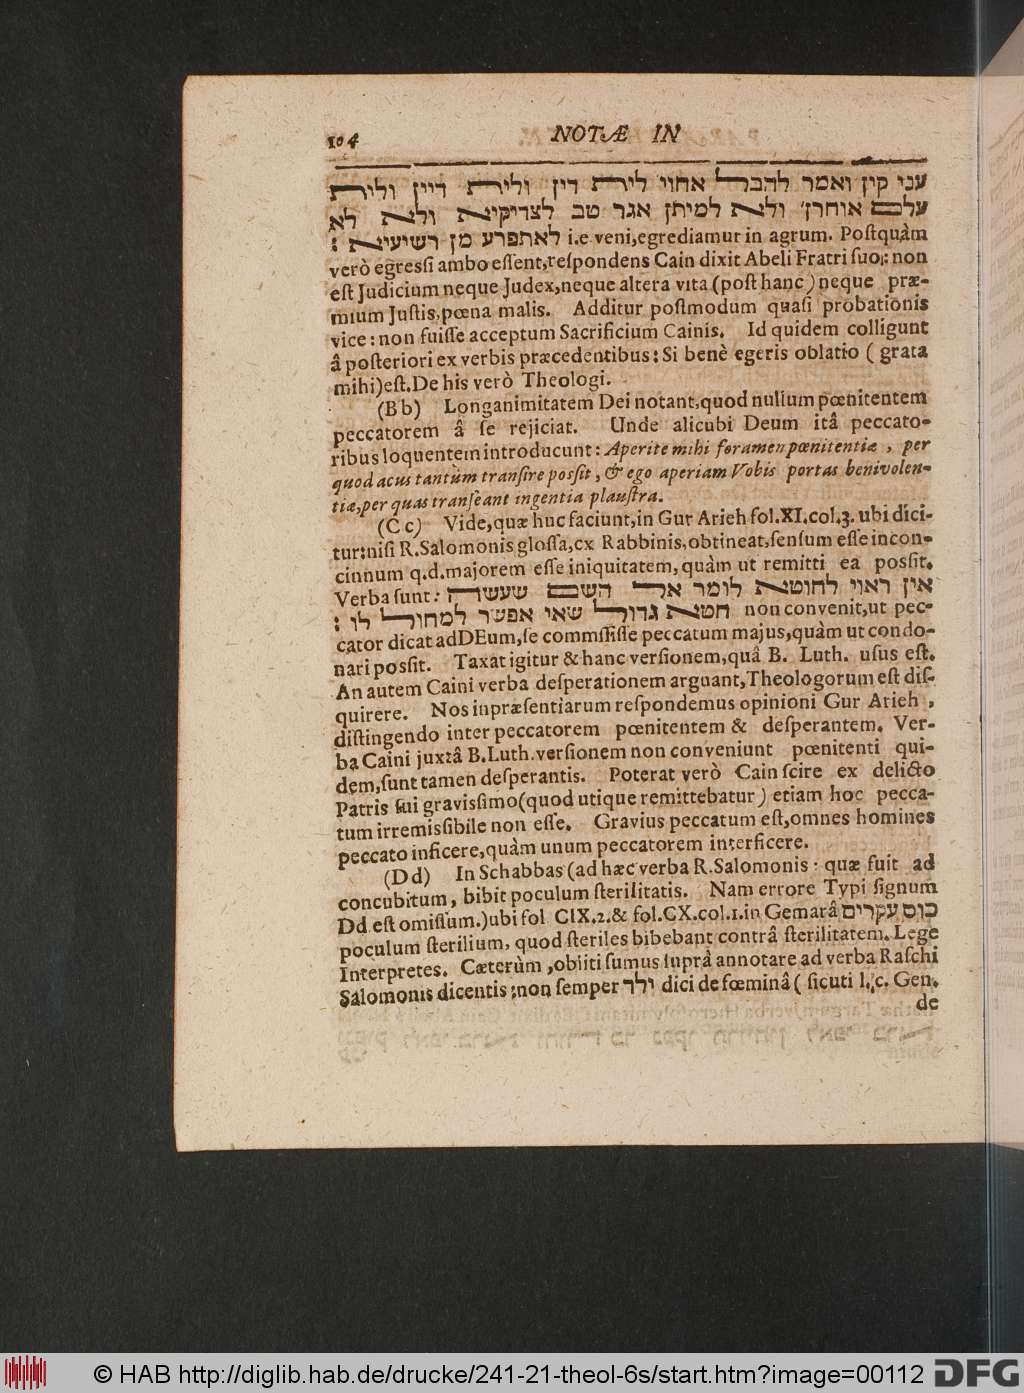 104 NOTÆ IN
עני קין ואמר להבל אחוי לית דין ולית דיין ולית
עלם אוחרן׳ ולא למיתן אגר טב לצדיקיא ולא לא
לאתפרע מן רשיעיא : i.e veni,egrediamur in agrum. Poſtquàm
verò egreſſi ambo eſſent,reſpondens Cain dixit Abeli Fratri ſuo: non
eſt Judicium neque Judex,neque altera vita (poſt hanc) neque præ-
mium Juſtis,pœna malis. Additur poſtmodum quaſi probationis
vice: non fuiſſe acceptum Sacrificium Cainis. Id quidem colligunt
â poſteriori ex verbis præcedentibus: Si benè egeris oblatio ( grata
mihi)eſt.De his verò Theologi.
(Bb) Longanimitatem Dei notant,quod nullum pœnitentem
peccatorem â ſe rejiciat. Unde alicubi Deum itâ peccato-
ribus loquentem introducunt: Aperite mihi foramen pœnitentiæ , per
quod acus tantùm tranſire poſſit, & ego aperiam Vobis portas benivolen-
tiæ,per quas tranſeant ingentia plauſtra.
(Cc) Vide,quæ huc faciunt,in Gur Arieh fol.XI.col.3. ubi dici-
tur:niſi R.Salomonis gloſſa,cx Rabbinis,obtineat,ſenſum eſſe incon-
cinnum q.d.majorem eſſe iniquitatem,quàm ut remitti ea poſſit.
Verba ſunt: אין ראוי לחוטא לומר אל השם שעשה
חטא גדול שאי אפשר למחול לו : non convenit,ut pec-
cator dicat adDEum,ſe commſſiſſe peccatum majus,quàm ut condo-
nari poſſit. Taxat igitur & hanc verſionem,quâ B. Luth. uſus eſt.
An autem Caini verba deſperationem arguant,Theologorum eſt diſ-
quirere. Nos inpræſentiarum reſpondemus opinioni Gur Arieh ,
diſtingendo inter peccatorem pœnitentem & deſperantem. Ver-
ba Caini juxtâ B.Luth.verſionem non conveniunt pœnitenti qui-
dem,ſunt tamen deſperantis. Poterat verò Cain ſcire ex delicto
Patris ſui graviſſimo(quod utique remittebatur) etiam hoc pecca-
tum irremiſſibile non eſſe. Gravius peccatum eſt,omnes homines
peccato inficere,quàm unum peccatorem interficere.
(Dd) In Schabbas (ad hæc verba R.Salomonis : quæ fuit ad
concubitum, bibit poculum ſterilitatis. Nam errore Typi ſignum
Dd eſt omiſſum.)ubi fol CIX.2.& fol.CX.col.1.in Gemarâ כוס עקרים
poculum ſterilium, quod ſteriles bibebant contrâ ſterilitatem. Lege
Interpretes. Cæterùm ,obliti ſumus ſuprà annotare ad verba Raſchi
Salomonis dicentis:non ſemper ילד dici de fœminâ ( ſicuti l. c. Gen.
de
© HAB http://diglib.hab.de/drucke/241-21-theol-6s/start.htm?image=00112 DFG